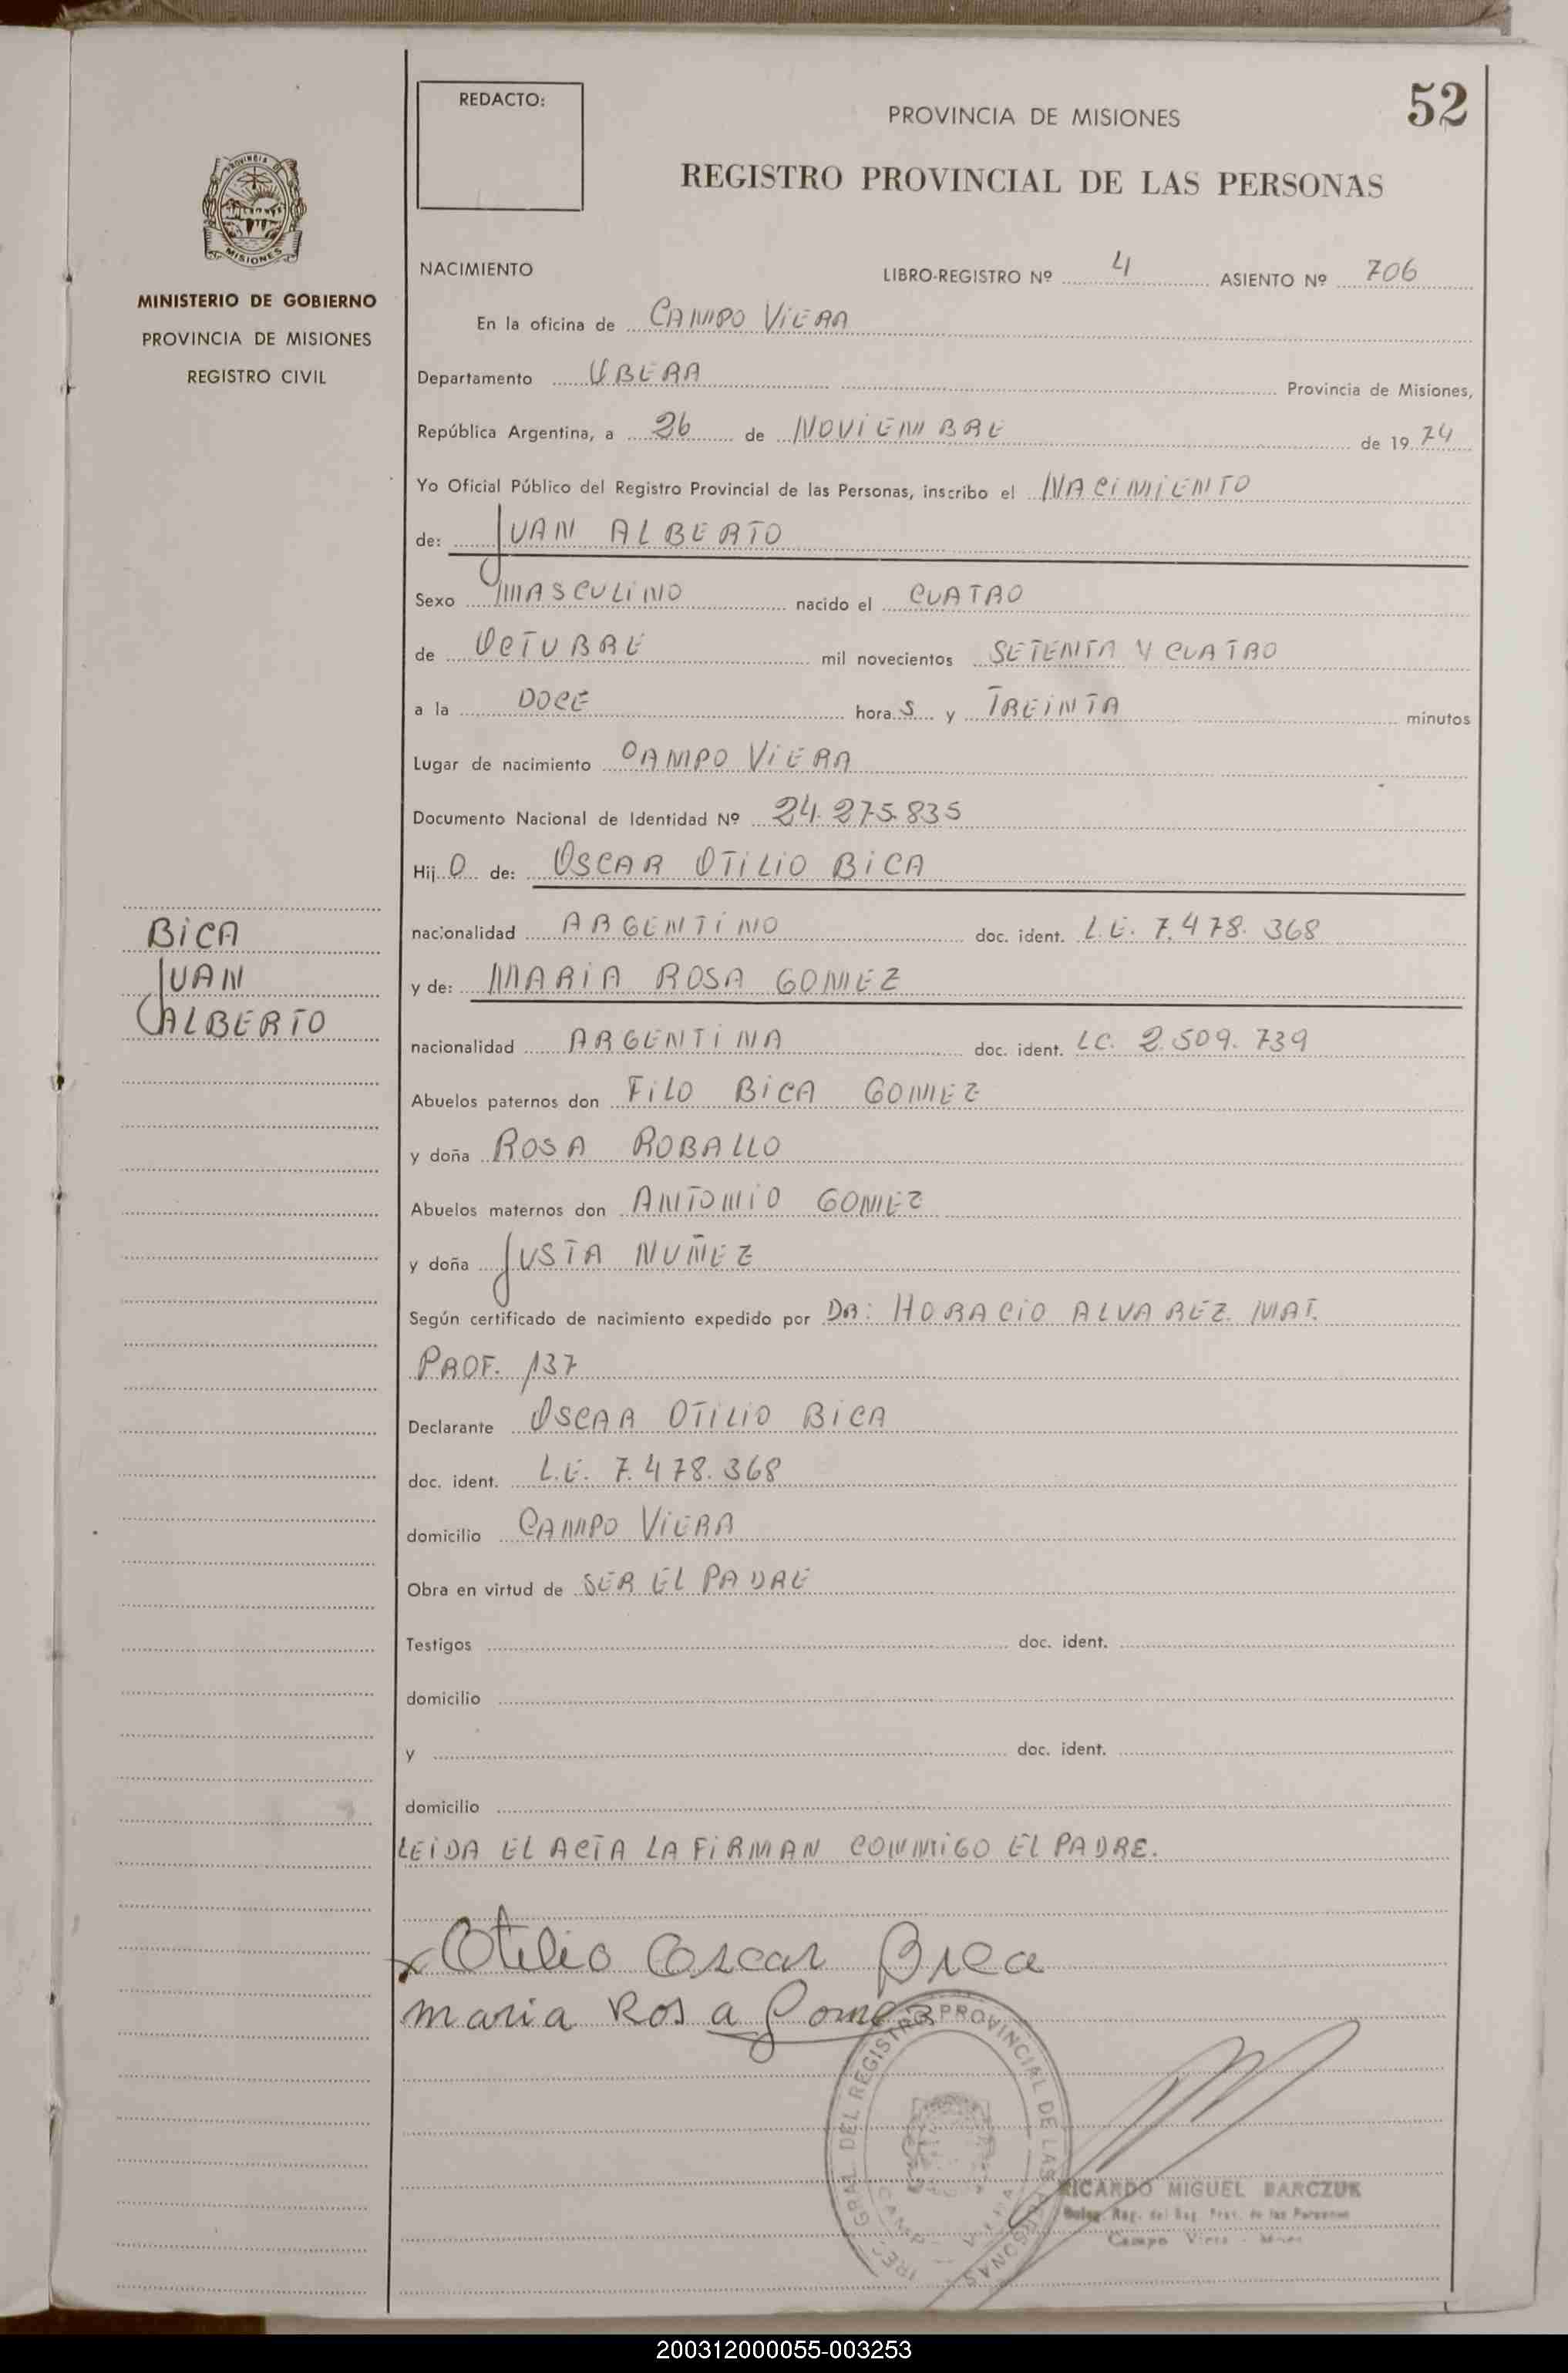 REDACTO:
PROVINCIA DE MISIONES
52
REGISTRO PROVINCIAL DE LAS PERSONAS
PROVINCIA DE
MISIONES
MINISTERIO DE GOBIERNO
PROVINCIA DE MISIONES
REGISTRO CIVIL
NACIMIENTO LIBRO-REGISTRO Nº 4 ASIENTO Nº 706
En la oficina de CAMPO VIERA
Departamento OBERA Provincia de Misiones,
República Argentina, a 26 de NOVIEMBRE de 1974
Yo Oficial Público del Registro Provincial de las Personas, inscribo el NACIMIENTO
de: JUAN ALBERTO
Sexo MASCULINO nacido el CUATRO
de OCTUBRE mil novecientos SETENTA Y CUATRO
a la DOCE horas y TREINTA minutos
Lugar de nacimiento CAMPO VIERA
Documento Nacional de Identidad Nº 24.275.835
Hijo de: OSCAR OTILIO BICA
nacionalidad ARGENTINO doc. ident. L.E. 7.478.368
y de: MARIA ROSA GOMEZ
nacionalidad ARGENTINA doc. ident. LC. 2.509.739
Abuelos paternos don FILO BICA GOMEZ
y doña ROSA ROBALLO
Abuelos maternos don ANTONIO GOMEZ
y doña JUSTA NUÑEZ
Según certificado de nacimiento expedido por DR: HORACIO ALVAREZ. MAT.
PROF. 137
Declarante OSCAR OTILIO BICA
doc. ident. L.E. 7.478.368
domicilio CAMPO VIERA
Obra en virtud de SER EL PADRE
Testigos doc. ident.
domicilio
y doc. ident.
domicilio
LEIDA EL ACTA LA FIRMAN CONMIGO EL PADRE.
BICA
JUAN
ALBERTO
x Otilio Oscar Bica
maria Rosa Gomez
GRAL. DEL REGISTRO PROVINCIAL DE LAS PERSONAS
RICARDO MIGUEL BARCZUK
Campo Viera
200312000055-003253